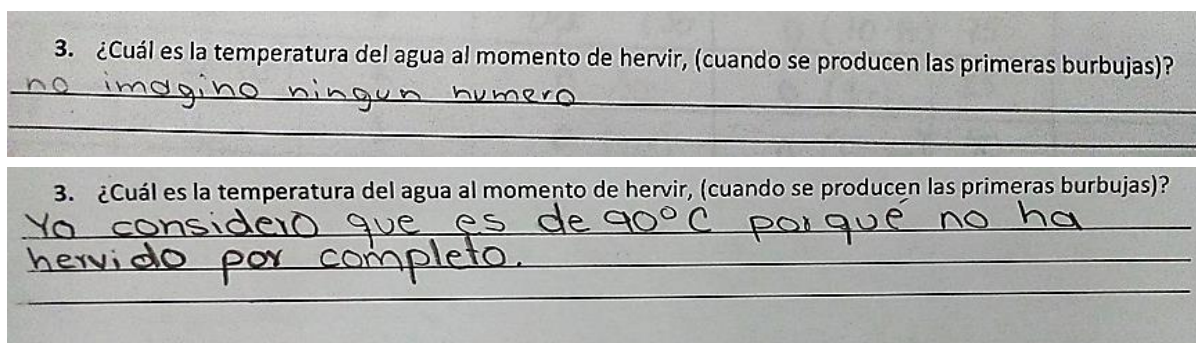 3. ¿Cuál es la temperatura del agua al momento de hervir, (cuando se producen las primeras burbujas)?
no imagino ningun numero
3. ¿Cuál es la temperatura del agua al momento de hervir, (cuando se producen las primeras burbujas)?
Yo considero que es de 90°C porqué no ha
hervido por completo.